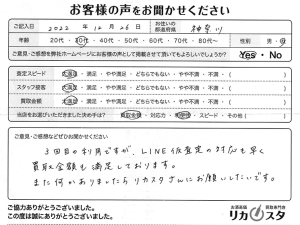 お客様の声をお聞かせください
ご記入日 2022年 12月 26日 お住いの都道府県 神奈川
年齢 20代・30代・40代・50代・60代・70代・80代〜 性別 男・女
ご意見・ご感想を弊社ホームページにお客様の声として掲載させて頂いてもよろしいでしょうか? Yes・No
査定スピード 大満足・満足・やや満足・どちらでもない・やや不満・不満・( )
スタッフ接客 大満足・満足・やや満足・どちらでもない・やや不満・不満・( )
買取金額 大満足・満足・やや満足・どちらでもない・やや不満・不満・( )
当店をお選びいただきました決め手は? 買取金額・対応力・ ・スピード・その他( )
ご意見・ご感想などぜひお聞かせください
3回目の利用ですが、LINE仮査定の対応も早く
買取金額も満足しております。
また何かありましたらリカスタさんにお願いしたいです。
ご協力ありがとうございました。
この度は誠にありがとうございました。
お酒高価買取専門店
リカスタ